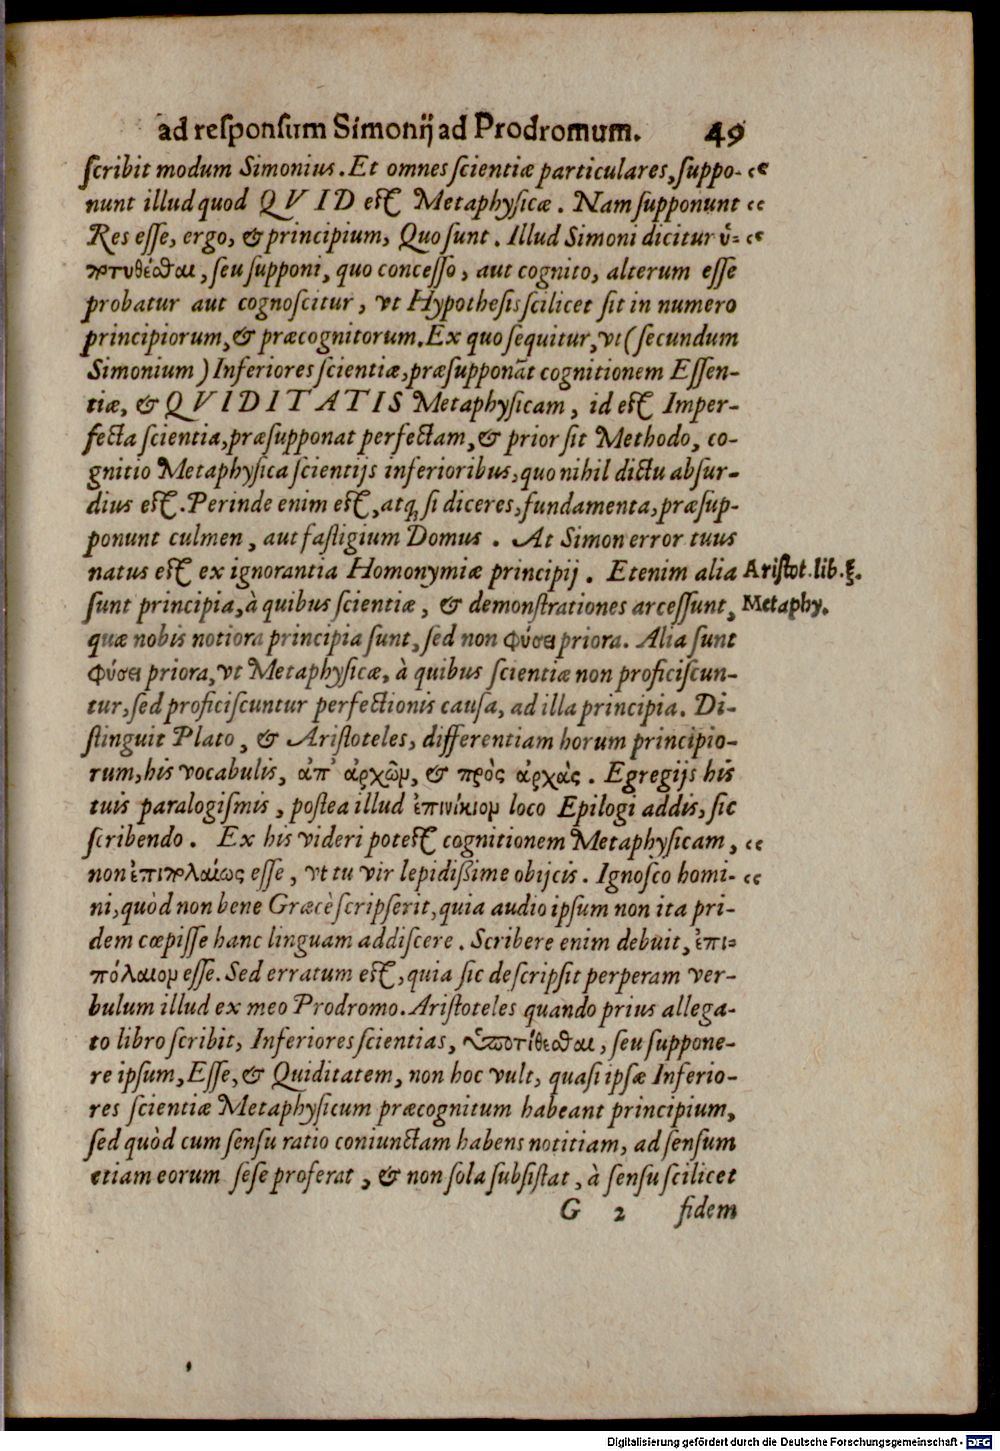 ad responsum Simonij ad Prodromum. 49
scribit modum Simonius. Et omnes scientiæ particulares, suppo- “
nunt illud quod QVID est Metaphysicæ. Nam supponunt “
Res esse, ergo, & principium, Quo sunt. Illud Simoni dicitur ὑ- “
ποτυθέσθαι, seu supponi, quo concesso, aut cognito, alterum esse
probatur aut cognoscitur, vt Hypothesis scilicet sit in numero
principiorum, & præcognitorum. Ex quo sequitur, vt (secundum
Simonium) Inferiores scientiæ, præsupponāt cognitionem Essen-
tiæ, & QVIDITATIS Metaphysicam, id est Imper-
fecta scientia, præsupponat perfectam, & prior sit Methodo, co-
gnitio Metaphysica scientijs inferioribus, quo nihil dictu absur-
dius est. Perinde enim est, atq; si diceres, fundamenta, præsup-
ponunt culmen, aut fastigium Domus. At Simon error tuus
natus est ex ignorantia Homonymiæ principij. Etenim alia Aristot. lib. ξ.
sunt principia, à quibus scientiæ, & demonstrationes arcessunt, Metaphy.
quæ nobis notiora principia sunt, sed non φύσει priora. Alia sunt
φύσει priora, vt Metaphysicæ, à quibus scientiæ non proficiscun-
tur, sed proficiscuntur perfectionis causa, ad illa principia. Di-
stinguit Plato, & Aristoteles, differentiam horum principio-
rum, his vocabulis, ἀπ’ ἀρχῶν, & πρὸς ἀρχὰς. Egregijs his
tuis paralogismis, postea illud ἐπινίκιον loco Epilogi addis, sic
scribendo. Ex his videri potest cognitionem Metaphysicam, “
non ἐπιπλαίως esse, vt tu vir lepidißime obijcis. Ignosco homi- “
ni, quòd non bene Græcè scripserit, quia audio ipsum non ita pri-
dem cœpisse hanc linguam addiscere. Scribere enim debuit, ἐπι-
πόλαιον esse. Sed erratum est, quia sic descripsit perperam ver-
bulum illud ex meo Prodromo. Aristoteles quando prius allega-
to libro scribit, Inferiores scientias, ὑποτίθεσθαι, seu suppone-
re ipsum, Esse, & Quiditatem, non hoc vult, quasi ipsæ Inferio-
res scientiæ Metaphysicum præcognitum habeant principium,
sed quòd cum sensu ratio coniunctam habens notitiam, ad sensum
etiam eorum sese proferat, & non sola subsistat, à sensu scilicet
G 2 fidem
Digitalisierung gefördert durch die Deutsche Forschungsgemeinschaft - DFG